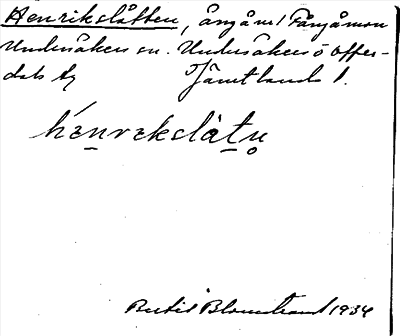 Henrikslåtten, äng å nr 1 Fångåmon
Undersåkers sn. Undersåkers o Offer-
dals tg Jämtlands l.
hénrekslåtn̥
Bertil Blomstrand 1934